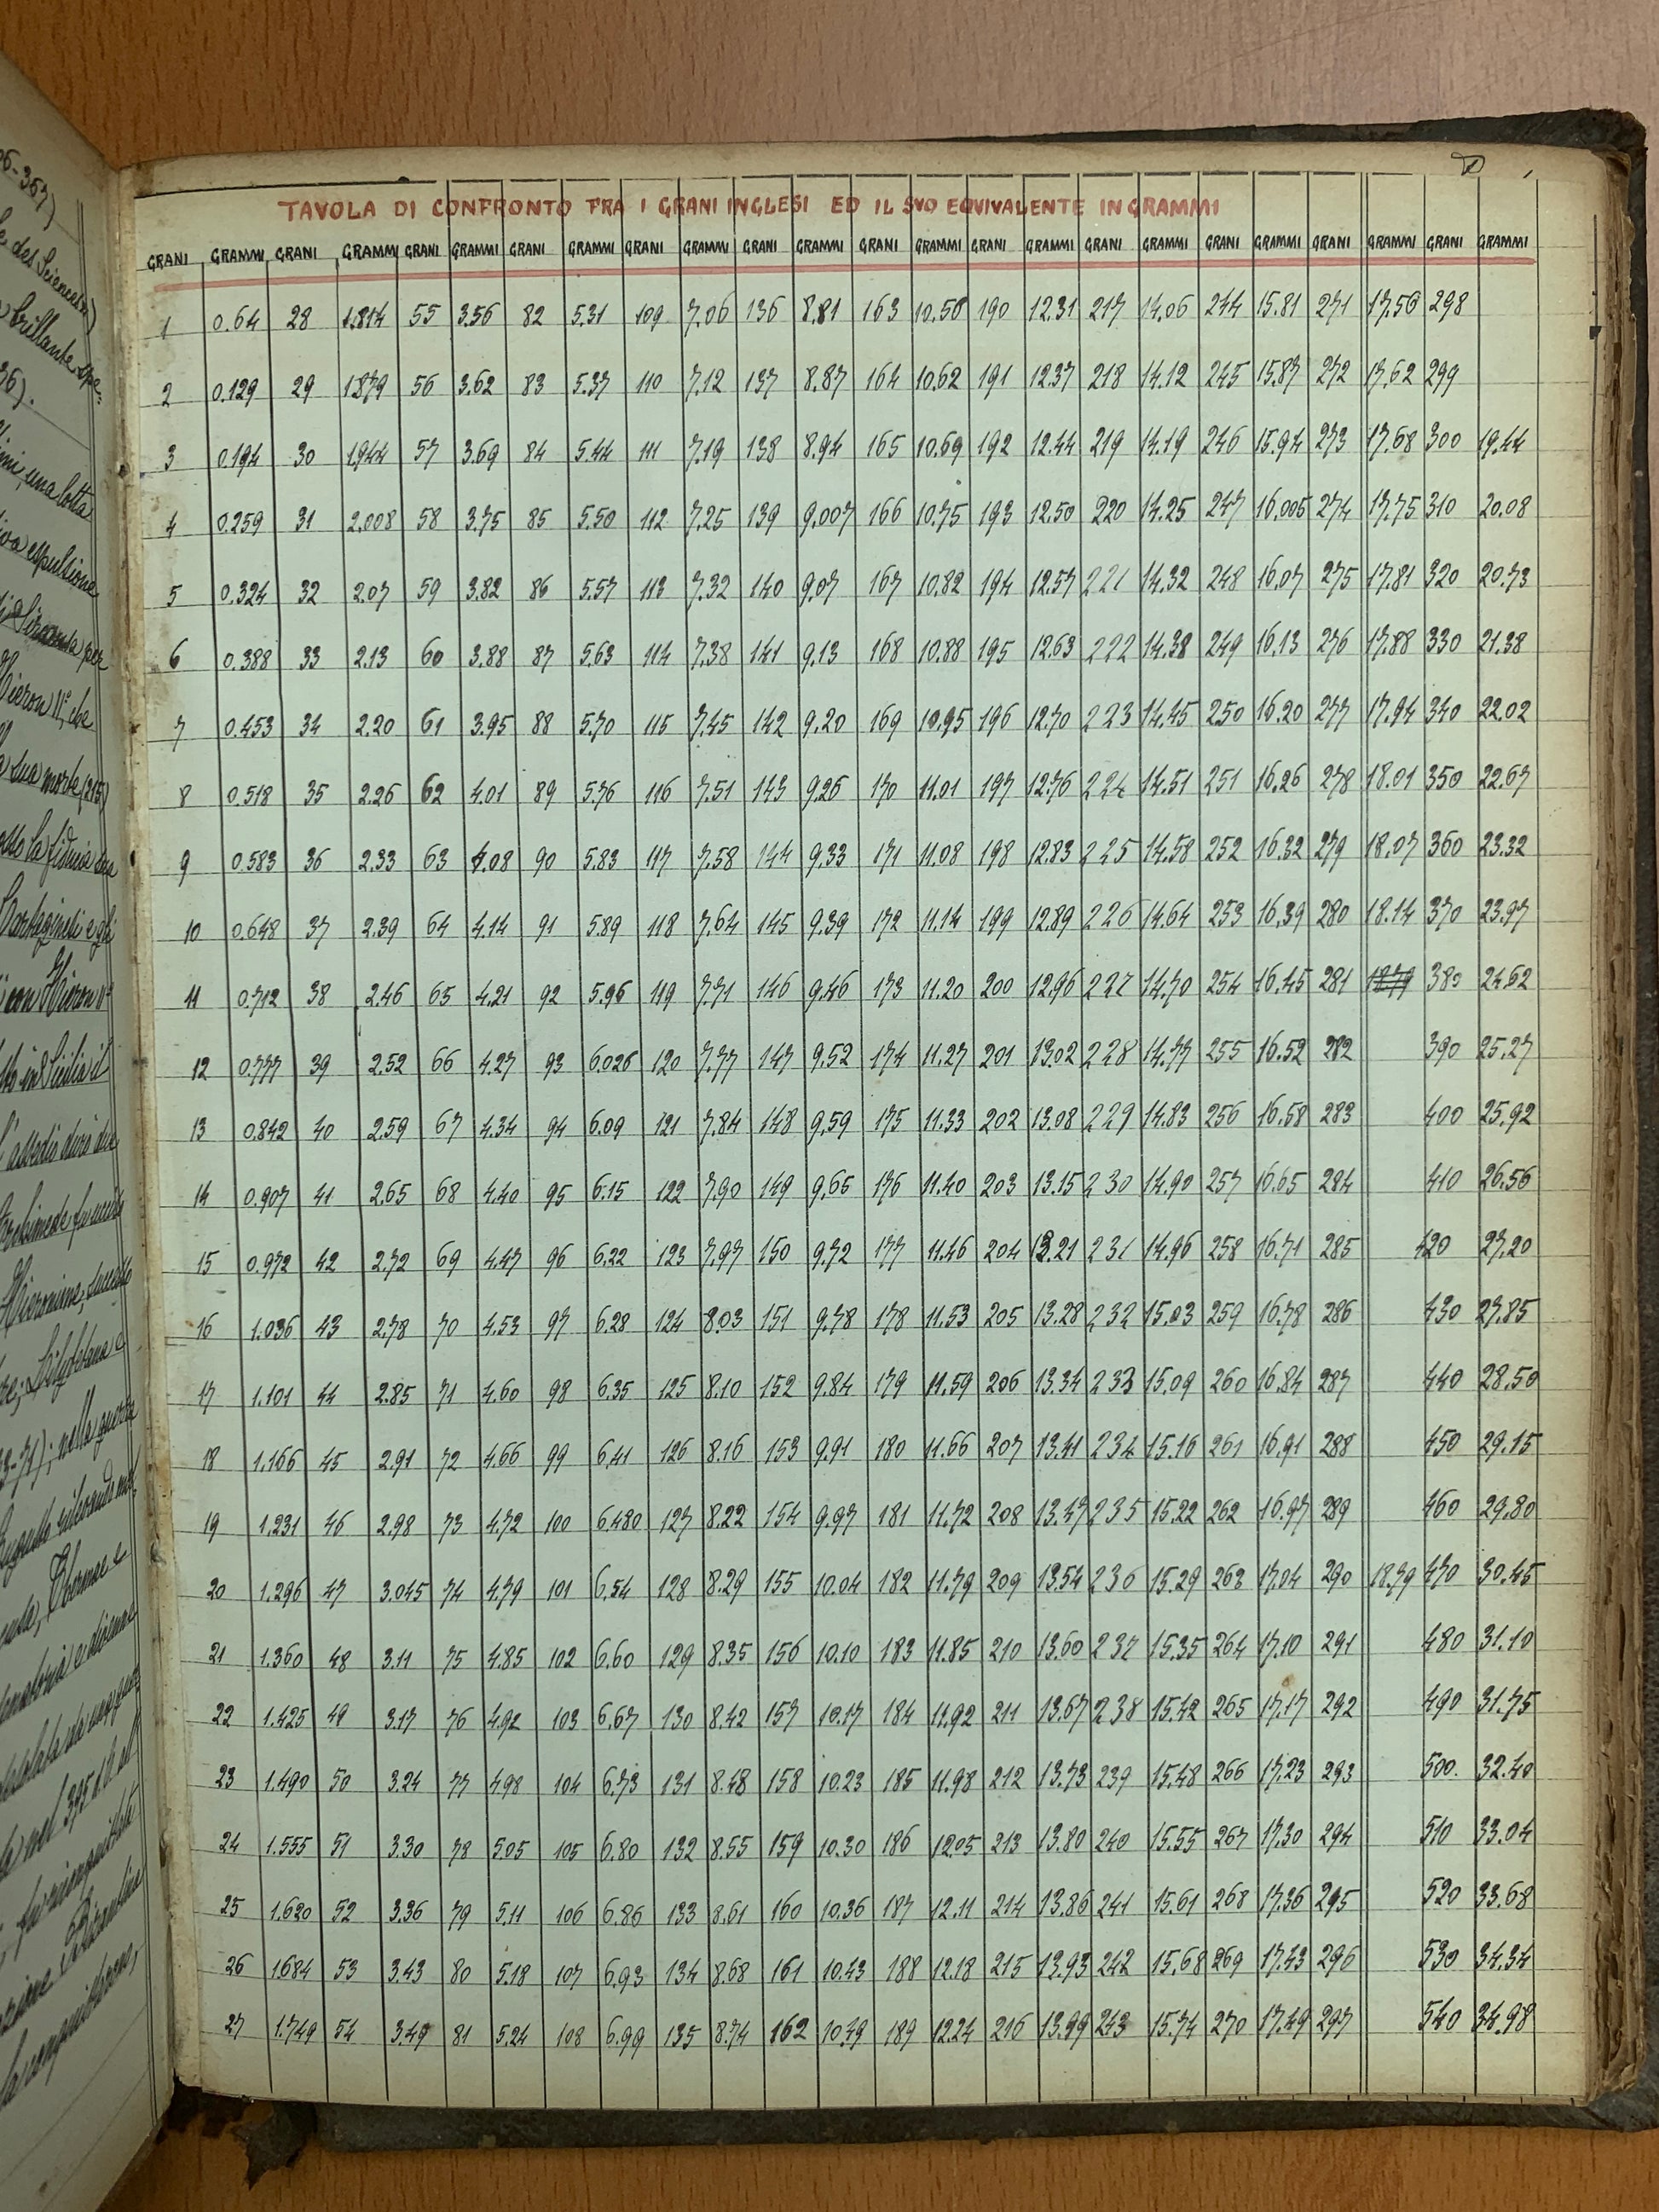 06-367)
des Sciences)
brillante spe-
76).
una lotta
espulsione
per
Hieron II°, che
sua morte (215)
la fiducia
Cartaginesi e gli
con Hieron II°
in Sicilia il
l'assedio durò due
Archimede fu
Hieronime,
nella guerra
Thermae e
nel 375
TAVOLA DI CONFRONTO FRA I GRANI INGLESI ED IL SVO EQVIVALENTE IN GRAMMI
GRANI GRAMMI GRANI GRAMMI GRANI GRAMMI GRANI GRAMMI GRANI GRAMMI GRANI GRAMMI GRANI GRAMMI GRANI GRAMMI GRANI GRAMMI GRANI GRAMMI GRANI GRAMMI GRANI GRAMMI
1 0.64 28 1.814 55 3.56 82 5.31 109 7.06 136 8.81 163 10.56 190 12.31 217 14.06 244 15.81 271 17.56 298
2 0.129 29 1.879 56 3.62 83 5.37 110 7.12 137 8.87 164 10.62 191 12.37 218 14.12 245 15.87 272 17.62 299
3 0.194 30 1.944 57 3.69 84 5.44 111 7.19 138 8.94 165 10.69 192 12.44 219 14.19 246 15.94 273 17.68 300 19.44
4 0.259 31 2.008 58 3.75 85 5.50 112 7.25 139 9.007 166 10.75 193 12.50 220 14.25 247 16.005 274 17.75 310 20.08
5 0.324 32 2.07 59 3.82 86 5.57 113 7.32 140 9.07 167 10.82 194 12.57 221 14.32 248 16.07 275 17.81 320 20.73
6 0.388 33 2.13 60 3.88 87 5.63 114 7.38 141 9.13 168 10.88 195 12.63 222 14.38 249 16.13 276 17.88 330 21.38
7 0.453 34 2.20 61 3.95 88 5.70 115 7.45 142 9.20 169 10.95 196 12.70 223 14.45 250 16.20 277 17.94 340 22.02
8 0.518 35 2.26 62 4.01 89 5.76 116 7.51 143 9.26 170 11.01 197 12.76 224 14.51 251 16.26 278 18.01 350 22.67
9 0.583 36 2.33 63 4.08 90 5.83 117 7.58 144 9.33 171 11.08 198 12.83 225 14.58 252 16.32 279 18.07 360 23.32
10 0.648 37 2.39 64 4.14 91 5.89 118 7.64 145 9.39 172 11.14 199 12.89 226 14.64 253 16.39 280 18.14 370 23.97
11 0.712 38 2.46 65 4.21 92 5.96 119 7.71 146 9.46 173 11.20 200 12.96 227 14.70 254 16.45 281 18.79 380 24.62
12 0.777 39 2.52 66 4.27 93 6.026 120 7.77 147 9.52 174 11.27 201 13.02 228 14.77 255 16.52 282 390 25.27
13 0.842 40 2.59 67 4.34 94 6.09 121 7.84 148 9.59 175 11.33 202 13.08 229 14.83 256 16.58 283 400 25.92
14 0.907 41 2.65 68 4.40 95 6.15 122 7.90 149 9.65 176 11.40 203 13.15 230 14.90 257 16.65 284 410 26.56
15 0.972 42 2.72 69 4.47 96 6.22 123 7.97 150 9.72 177 11.46 204 13.21 231 14.96 258 16.71 285 420 27.20
16 1.036 43 2.78 70 4.53 97 6.28 124 8.03 151 9.78 178 11.53 205 13.28 232 15.03 259 16.78 286 430 27.85
17 1.101 44 2.85 71 4.60 98 6.35 125 8.10 152 9.84 179 11.59 206 13.34 233 15.09 260 16.84 287 440 28.50
18 1.166 45 2.91 72 4.66 99 6.41 126 8.16 153 9.91 180 11.66 207 13.41 234 15.16 261 16.91 288 450 29.15
19 1.231 46 2.98 73 4.72 100 6.480 127 8.22 154 9.97 181 11.72 208 13.47 235 15.22 262 16.97 289 460 29.80
20 1.296 47 3.045 74 4.79 101 6.54 128 8.29 155 10.04 182 11.79 209 13.54 236 15.29 263 17.04 290 18.79 470 30.45
21 1.360 48 3.11 75 4.85 102 6.60 129 8.35 156 10.10 183 11.85 210 13.60 237 15.35 264 17.10 291 480 31.10
22 1.425 49 3.17 76 4.92 103 6.67 130 8.42 157 10.17 184 11.92 211 13.67 238 15.42 265 17.17 292 490 31.75
23 1.490 50 3.24 77 4.98 104 6.73 131 8.48 158 10.23 185 11.98 212 13.73 239 15.48 266 17.23 293 500. 32.40
24 1.555 51 3.30 78 5.05 105 6.80 132 8.55 159 10.30 186 12.05 213 13.80 240 15.55 267 17.30 294 510 33.04
25 1.620 52 3.36 79 5.11 106 6.86 133 8.61 160 10.36 187 12.11 214 13.86 241 15.61 268 17.36 295 520 33.68
26 1.684 53 3.43 80 5.18 107 6.93 134 8.68 161 10.43 188 12.18 215 13.93 242 15.68 269 17.43 296 530 34.34
27 1.749 54 3.49 81 5.24 108 6.99 135 8.74 162 10.49 189 12.24 216 13.99 243 15.74 270 17.49 297 540 34.98